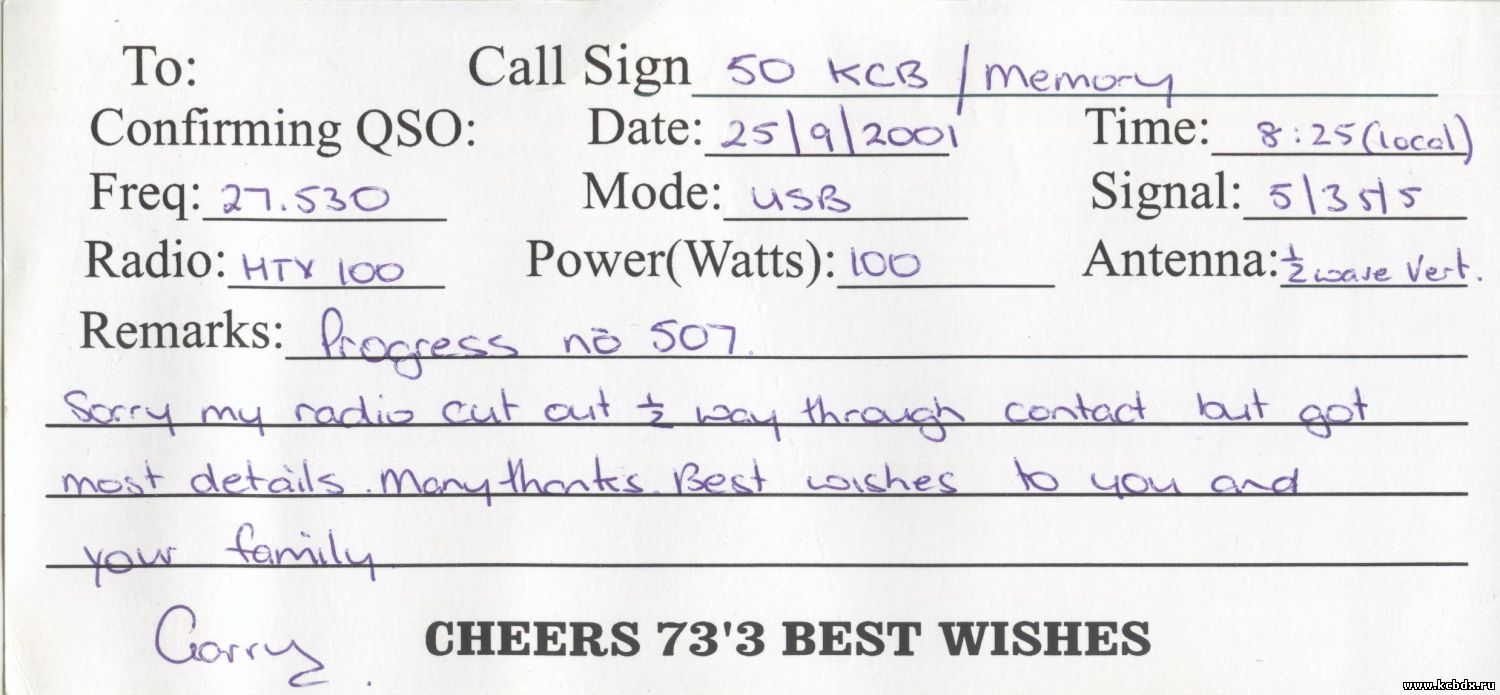 To: Call Sign 50 KCB / Memory
Confirming QSO: Date: 25/9/2001 Time: 8:25 (local)
Freq: 27.530 Mode: USB Signal: 5/35/5
Radio: HTX 100 Power(Watts): 100 Antenna: ½ wave Vert.
Remarks: Progress no 507.
Sorry my radio cut out ½ way through contact but got
most details. Many thanks. Best wishes to you and
your family
Garry.
CHEERS 73'3 BEST WISHES
www.kcbdx.ru